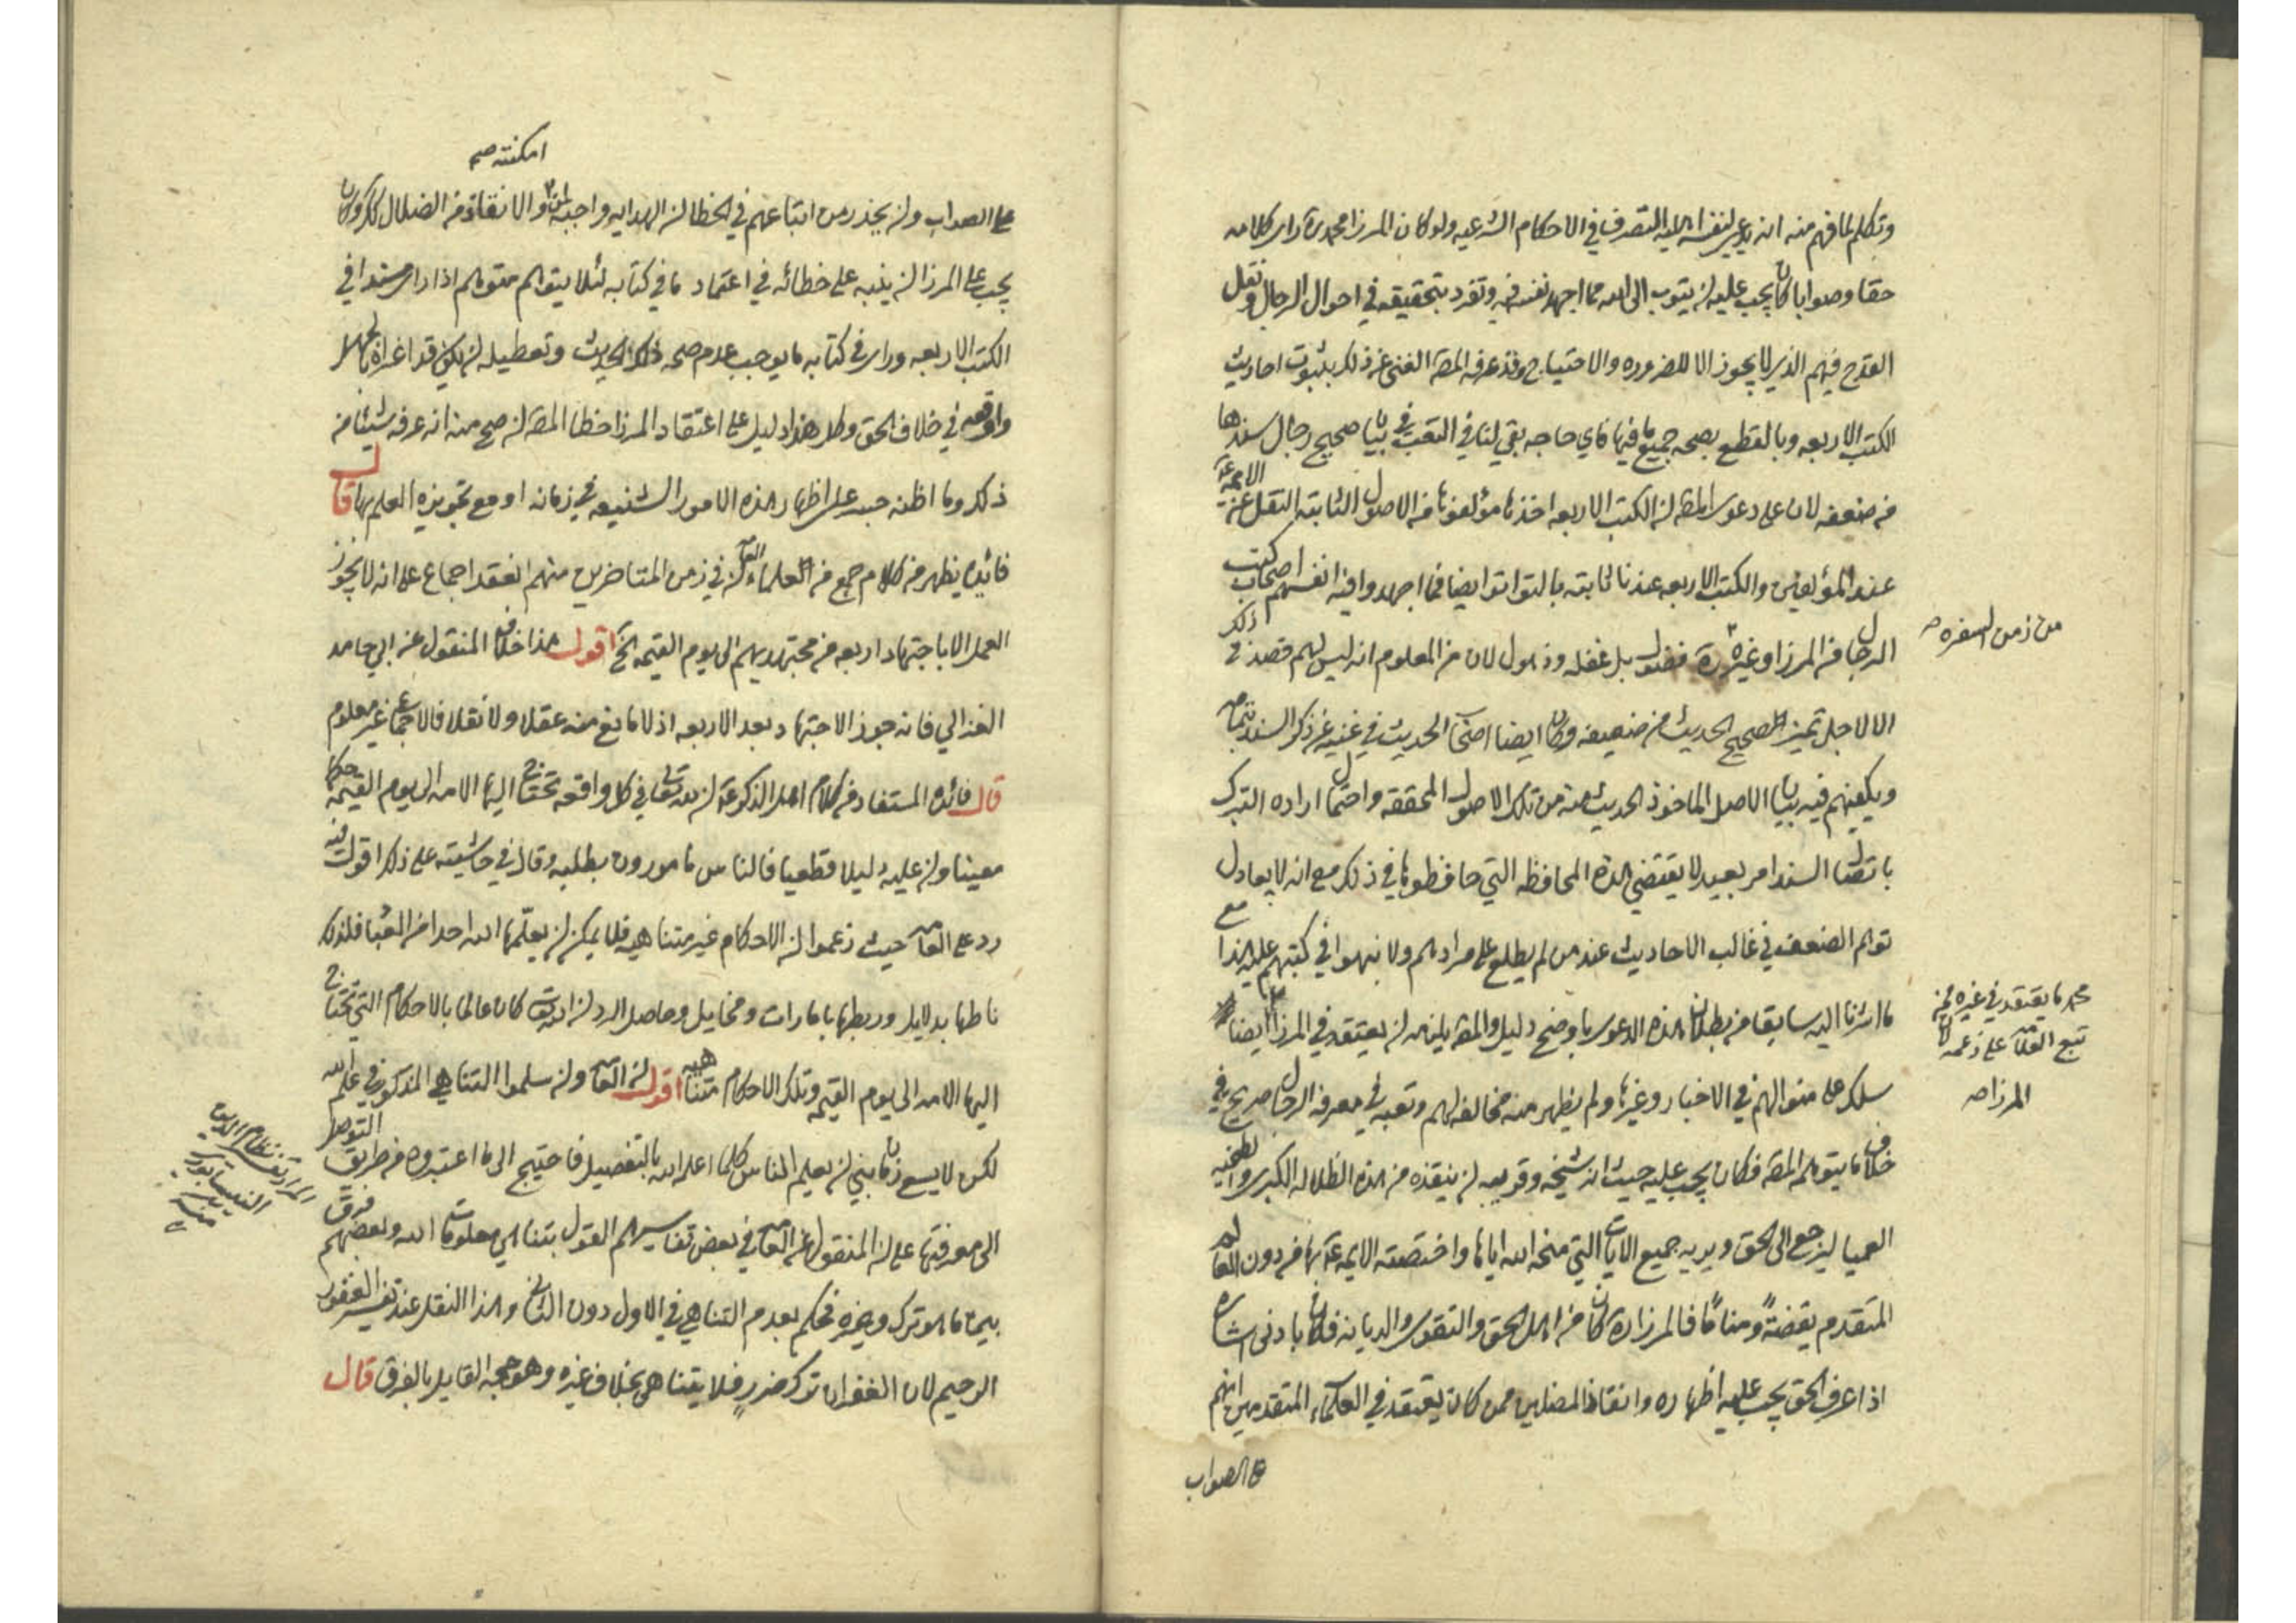 وتكلم لما فهم منه انه يدعي لنفسه اهلية التصرف في الاحكام الشرعيه ولو كان المرزا محمد ره راى كلامه
حقا وصوابا كان يجب عليه ان يتوب الى الله مما اجهد نفسه فيه وتفرد بتحقيقه في احوال الرجال ونقل
القدح فيهم الذي لا يجوز الا للضروره والاحتياج وقد عرفه المص الغنى عن ذلك بثبوت احاديث
الكتب الاربعه وبالقطع بصحه جميع ما فيها فاي حاجه بقي لنا في التعب في بيان صحيح رجال سندها
من ضعفه لان على دعوى المص ان الكتب الاربعه اخذها مؤلفوها من الاصول الثابته النقل عن الائمة ع
عند المؤلفين والكتب الاربعه عندنا ثابته بالتواتر ايضا فما اجهدوا فيه انفسهم اصحاب كتب
الرجال من المرزا وغيره ره فضول بل غفله وذهول لان من المعلوم انه ليس لهم قصد في ذلك
من زمن السفره صح
الا لاجل تميز الصحيح الحديث من ضعيفه وكان ايضا اصحاب الحديث في غنيه عن ذكر السند بتمامه
ويكفيهم فيه بيان الاصل الماخوذ الحديث منه من تلك الاصول المحققه واحتمال اراده التبرك
باتصال السند امر بعيد لا يقتضي هذه المحافظه التي حافظوها في ذلك مع انه لا يعادل
توهم الضعف في غالب الاحاديث عند من لم يطلع على مرادهم ولا نبهوا في كتبهم عليه هذا مع
ما اشرنا اليه سابقا من بطلان هذه الدعوى باوضح دليل والمص يلزمه ان يعتقد في المرزا ايضا
محمد ما يعتقد في غيره ممن
تبع العلامه على زعمه لان
المرزا صح
سلك على منوالهم في الاخبار وغيرها ولم يظهر منه مخالفه لهم وتعبه في معرفه الرجال صريح في
خلاف ما يتوهمه المص فكان يجب عليه حيث انه شيخه وقريبه ان ينقذه من هذه الضلاله الكبرى والطخيه
العميا ليرجع الى الحق ويريه جميع الايات التي منحه الله اياها واختصته الائمه ع بها من دون العالم
المتقدم يقضةً ومنامًا فالمرزا ره كان من اهل الحق والتقوى والديانه فكان بادنى اشاره
اذا عرف الحق يجب عليه اظهاره وانقاذ المضلين ممن كان يعتقد في العلماء المتقدمين انهم
على الصواب
امكنته صح
على الصواب وان يحذر من اتباعهم في الخطا لان الهدايه واجبه والانقاذ من الضلال كذلك وكان
يجب على المرزا ان ينبه على خطائه في اعتماد ما في كتابه لئلا يتوهم متوهم اذا راى سندا في
الكتب الاربعه وراى في كتابه ما يوجب عدم صحه ذلك الحديث وتعطيله ان يكون قد اغراه بالجهل
واوقعه في خلاف الحق وكل هذا دليل على اعتقاد المرزا خطا المص ان صح منه انه عرفه شيئا من
ذلك وما اظنه جسر على اظهار هذه الامور الشنيعه في زمانه او مع تجويزه العلم بها قال
فائده يظهر من كلام جمع من العلماء العامه ان في زمن المتاخرين منهم انعقد اجماع على انه لا يجوز
العمل الا باجتهاد اربعه من مجتهديهم الى يوم القيمه الخ اقول هذا خلاف المنقول عن ابي حامد
الغزالي فانه جوز الاجتهاد بعد الاربعه اذ لا مانع منه عقلا ولا نقلا فالاجماع غير معلوم
قال فائده المستفاد من كلام اهل الذكر ع ان لله تعالى في كل واقعه تحتاج اليها الامه الى يوم القيمه حكما
معينا وان عليه دليلا قطعيا فالناس مامورون بطلبه وقال في حاشيته على ذلك اقول فيه
رد على العامه حيث زعموا ان الاحكام غير متناهيه فلا يمكن ان يعلمها الله احدا من العباد فلذلك
ناطها بدلايل وربطها بامارات ومخايل وحاصل الرد ان الله تعالى كان عالما بالاحكام التي تحتاج
اليها الامه الى يوم القيمه وتلك الاحكام متناهيه اقول ان العامه وان سلموا التناهي المذكور في علم الله
لكن لا يسع زمان نبي ان يعلم الناس كلما اعلمه الله بالتفصيل فاحتيج الى ما اعتبروه من طريق التوصل
المراد تفسير نظام الدين
النيسابوري
منه
الى معرفتها على ان المنقول عن العامه في بعض تفاسيرهم القول بتناهي معلومات الله وبعضهم فرق
بين ما هو ترك وغيره فحكم بعدم التناهي في الاول دون الثاني وهذا النقل عند تفسير الغفور
الرحيم لان الغفران ترك ضرر فلا يتناهى بخلاف غيره وهو حجه القايل بالفرق قال